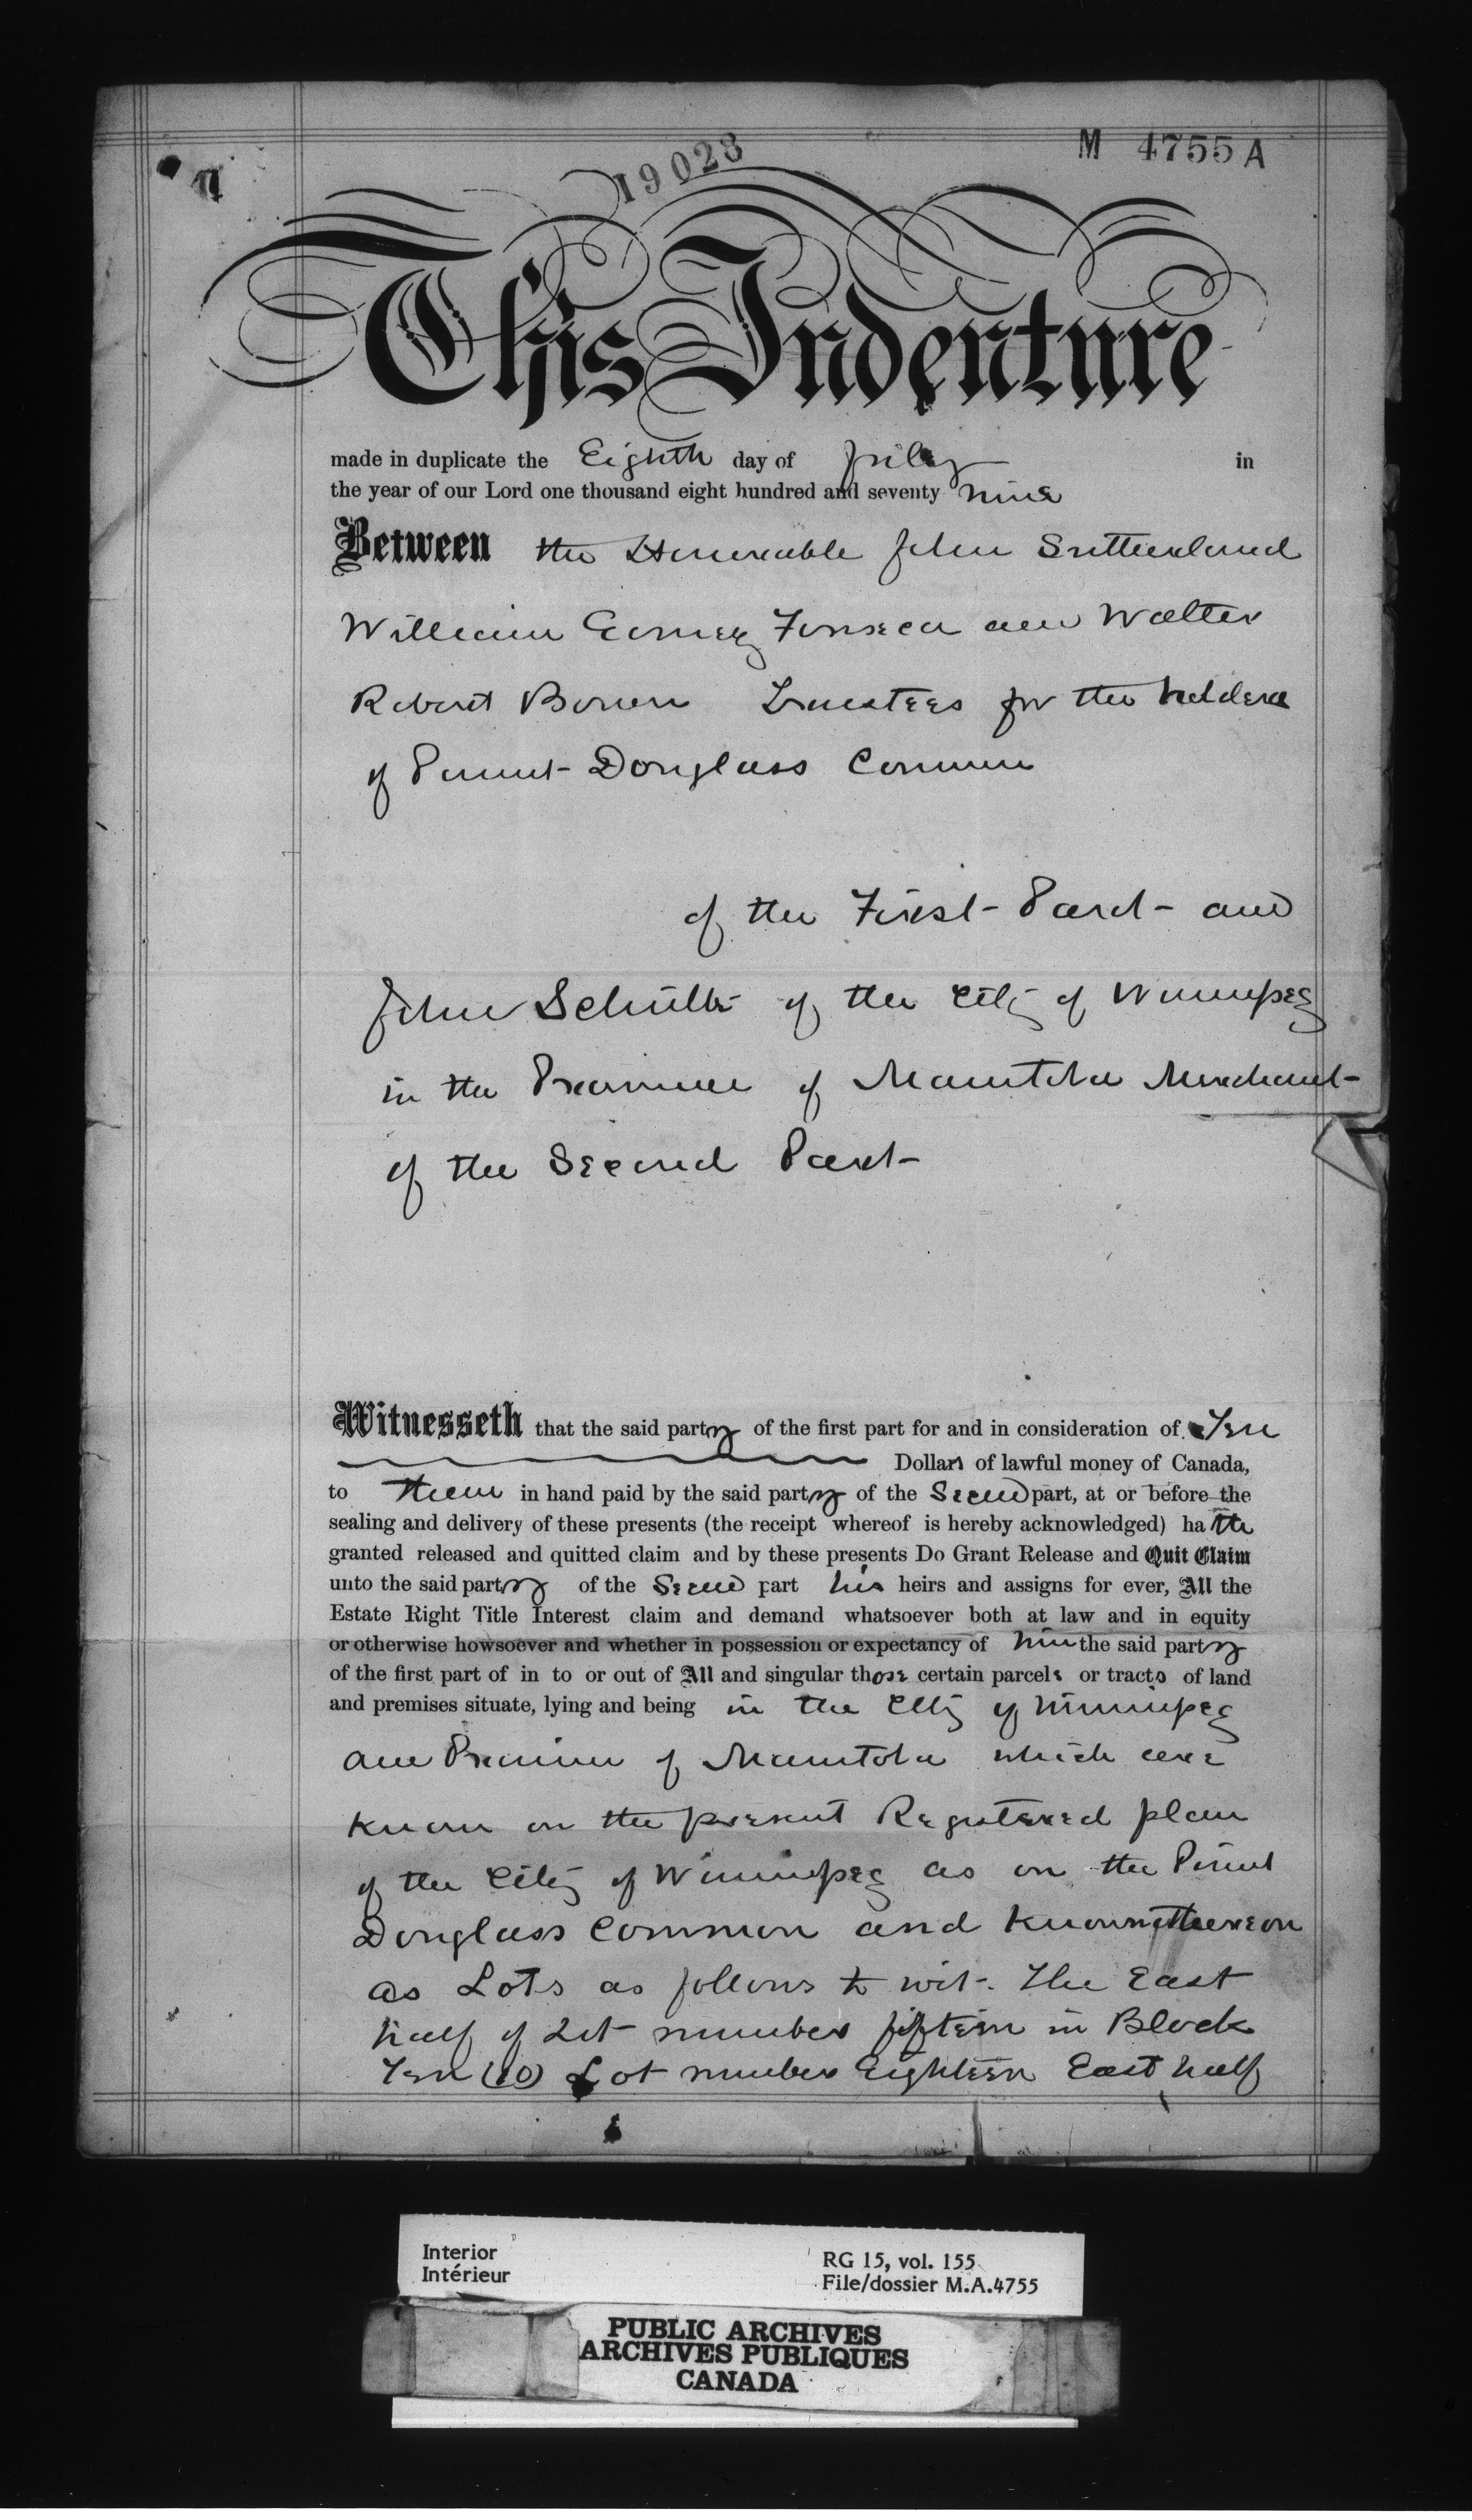 19023
M 4755 A
This Indenture
made in duplicate the Eighth day of July in
the year of our Lord one thousand eight hundred and seventy nine
Between the Honorable John Sutherland
William Gomez Fonseca and Walter
Robert Bown Trustees for the holders
of Point Douglass Common
of the First Part and
John Schultz of the City of Winnipeg
in the Province of Manitoba Merchant
of the Second Part
Witnesseth that the said party of the first part for and in consideration of Ten
Dollars of lawful money of Canada,
to them in hand paid by the said party of the Second part, at or before the
sealing and delivery of these presents (the receipt whereof is hereby acknowledged) hath
granted released and quitted claim and by these presents Do Grant Release and Quit Claim
unto the said party of the Second part his heirs and assigns for ever, All the
Estate Right Title Interest claim and demand whatsoever both at law and in equity
or otherwise howsoever and whether in possession or expectancy of him the said party
of the first part of in to or out of All and singular those certain parcels or tracts of land
and premises situate, lying and being in the City of Winnipeg
and Province of Manitoba which are
known on the present Registered plan
of the City of Winnipeg as on the Point
Douglass Common and known thereon
as Lots as follows to wit. The East
half of Lot number fifteen in Block
Ten (10) Lot number Eighteen East half
Interior
Intérieur
RG 15, vol. 155
File/dossier M.A.4755
PUBLIC ARCHIVES
ARCHIVES PUBLIQUES
CANADA